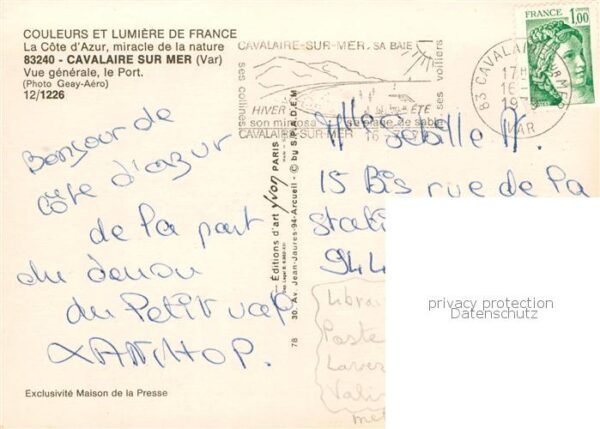 COULEURS ET LUMIÈRE DE FRANCE
La Côte d'Azur, miracle de la nature
83240 - CAVALAIRE SUR MER (Var)
Vue générale, le Port.
(Photo Geay-Aéro)
12/1226
CAVALAIRE-SUR-MER, SA BAIE
ses collines
ses voiliers
HIVER
ÉTÉ
son mimosa
sa plage de sable
CAVALAIRE-SUR-MER
FRANCE
1,00
83 CAVALAIRE SUR MER
17H
16-
197
VAR
Bonjour de
côte d'azur
de la part
du
du Petit
Éditions d'art Yvon PARIS
30, Av. Jean-Jaurès-94-Arcueil - © by S.P.A.D.E.M
78
15 Bis rue de la
944
Librai
Poste
privacy protection
Datenschutz
Exclusivité Maison de la Presse